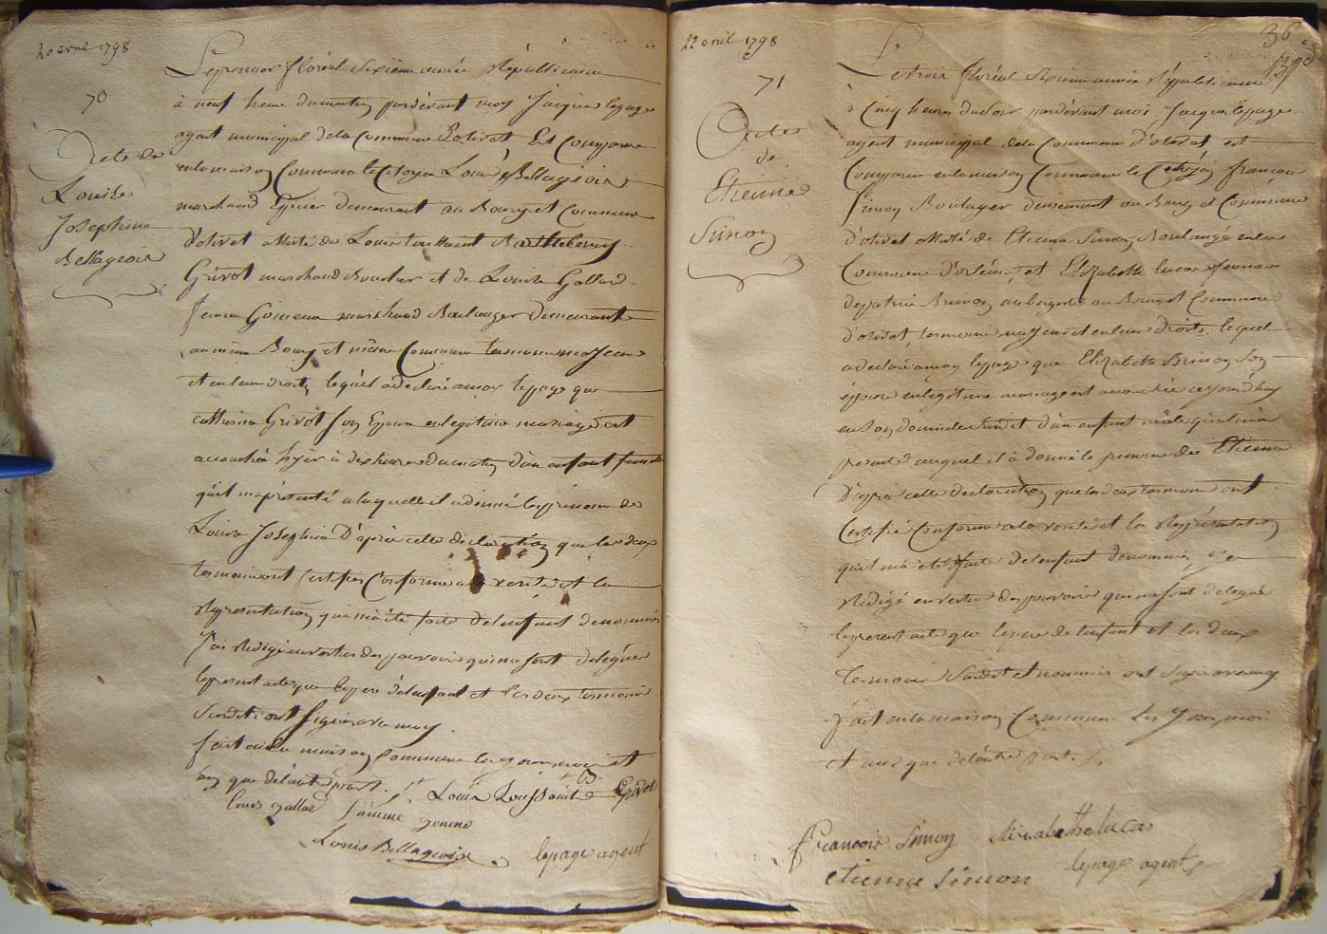 20 avril 1798
70
Acte de
Louise
Josephine
Bellageoise
Le premier floreal Sixieme année Républicaine
à neuf heure du matin pardevant moy Jacques lepage
agent municipal de la Commune d'olivet Est Comparu
en la maison Commune le Citoyen Louis Bellageoise
marchand Epicier demeurant au Bourg et Commune
d'olivet assisté de Louis toussaint Barthelemy
Grivot marchand Boucher et de Louise Gallard
femme marchand Boulanger demeurante
au même Bourg et même Commune tous majeurs
et en leurs droits, lequel a declaré a moy lepage que
catherine Grivot son Epouse en legitime mariage est
accouchée hyer à dix heures du matin d'un enfant femelle
qu'il m'a présenté a laquelle il a donné les prenoms de
Louise Josephine D'après cette declaration que les deux
temoins ont certifiée Conforme a la verité et la
représentation qui m'a été faite de l'enfant denommé
J'ai rédigé en vertu des pouvoirs qui me sont délégués
le present acte que le pere de l'enfant et les deux temoins
Susdits ont signé avec moy.
fait en la maison Commune les jour mois et
an que de l'autre part.
Louis Toussaint B Grivot
louise gallard femme
Louis Bellageoise lepage agent
36
22 avril 1798
71
Acte
de
Etienne
Simon
Le trois floreal Sixieme année Républicaine
à Cinq heures du soir pardevant moi Jacques lepage
agent municipal de la Commune d'olivet est
Comparu en la maison Commune le Citoyen françois
Simon Boulanger demeurant au Bourg et Commune
d'olivet assisté de Etienne Simon Boulanger en la
Commune d'orléans, et Elizabette lucas femme
Brinon aubergiste au Bourg et Commune
d'olivet tous majeurs et en leurs droits, lequel
a declaré a moy lepage que Elizabette Brinon son
épouse en legitime mariage est accouchée ce jourd'huy
en son domicile susdit d'un enfant mâle qu'il m'a
présenté auquel il a donné le prenom de Etienne
D'après cette declaration que les deux temoins ont
Certifié Conforme a la verité et la Représentation
qui m'a été faite de l'enfant denommé, j'ai
Rédigé en vertu des pouvoirs qui me sont delegués
le present acte que le pere de l'enfant et les deux
temoins Susdit et nommés ont signé avec moy
fait en la maison Commune les Jour, mois
et an que de l'autre part.
françois Simon elisabethe lucas
etienne simon lepage agent